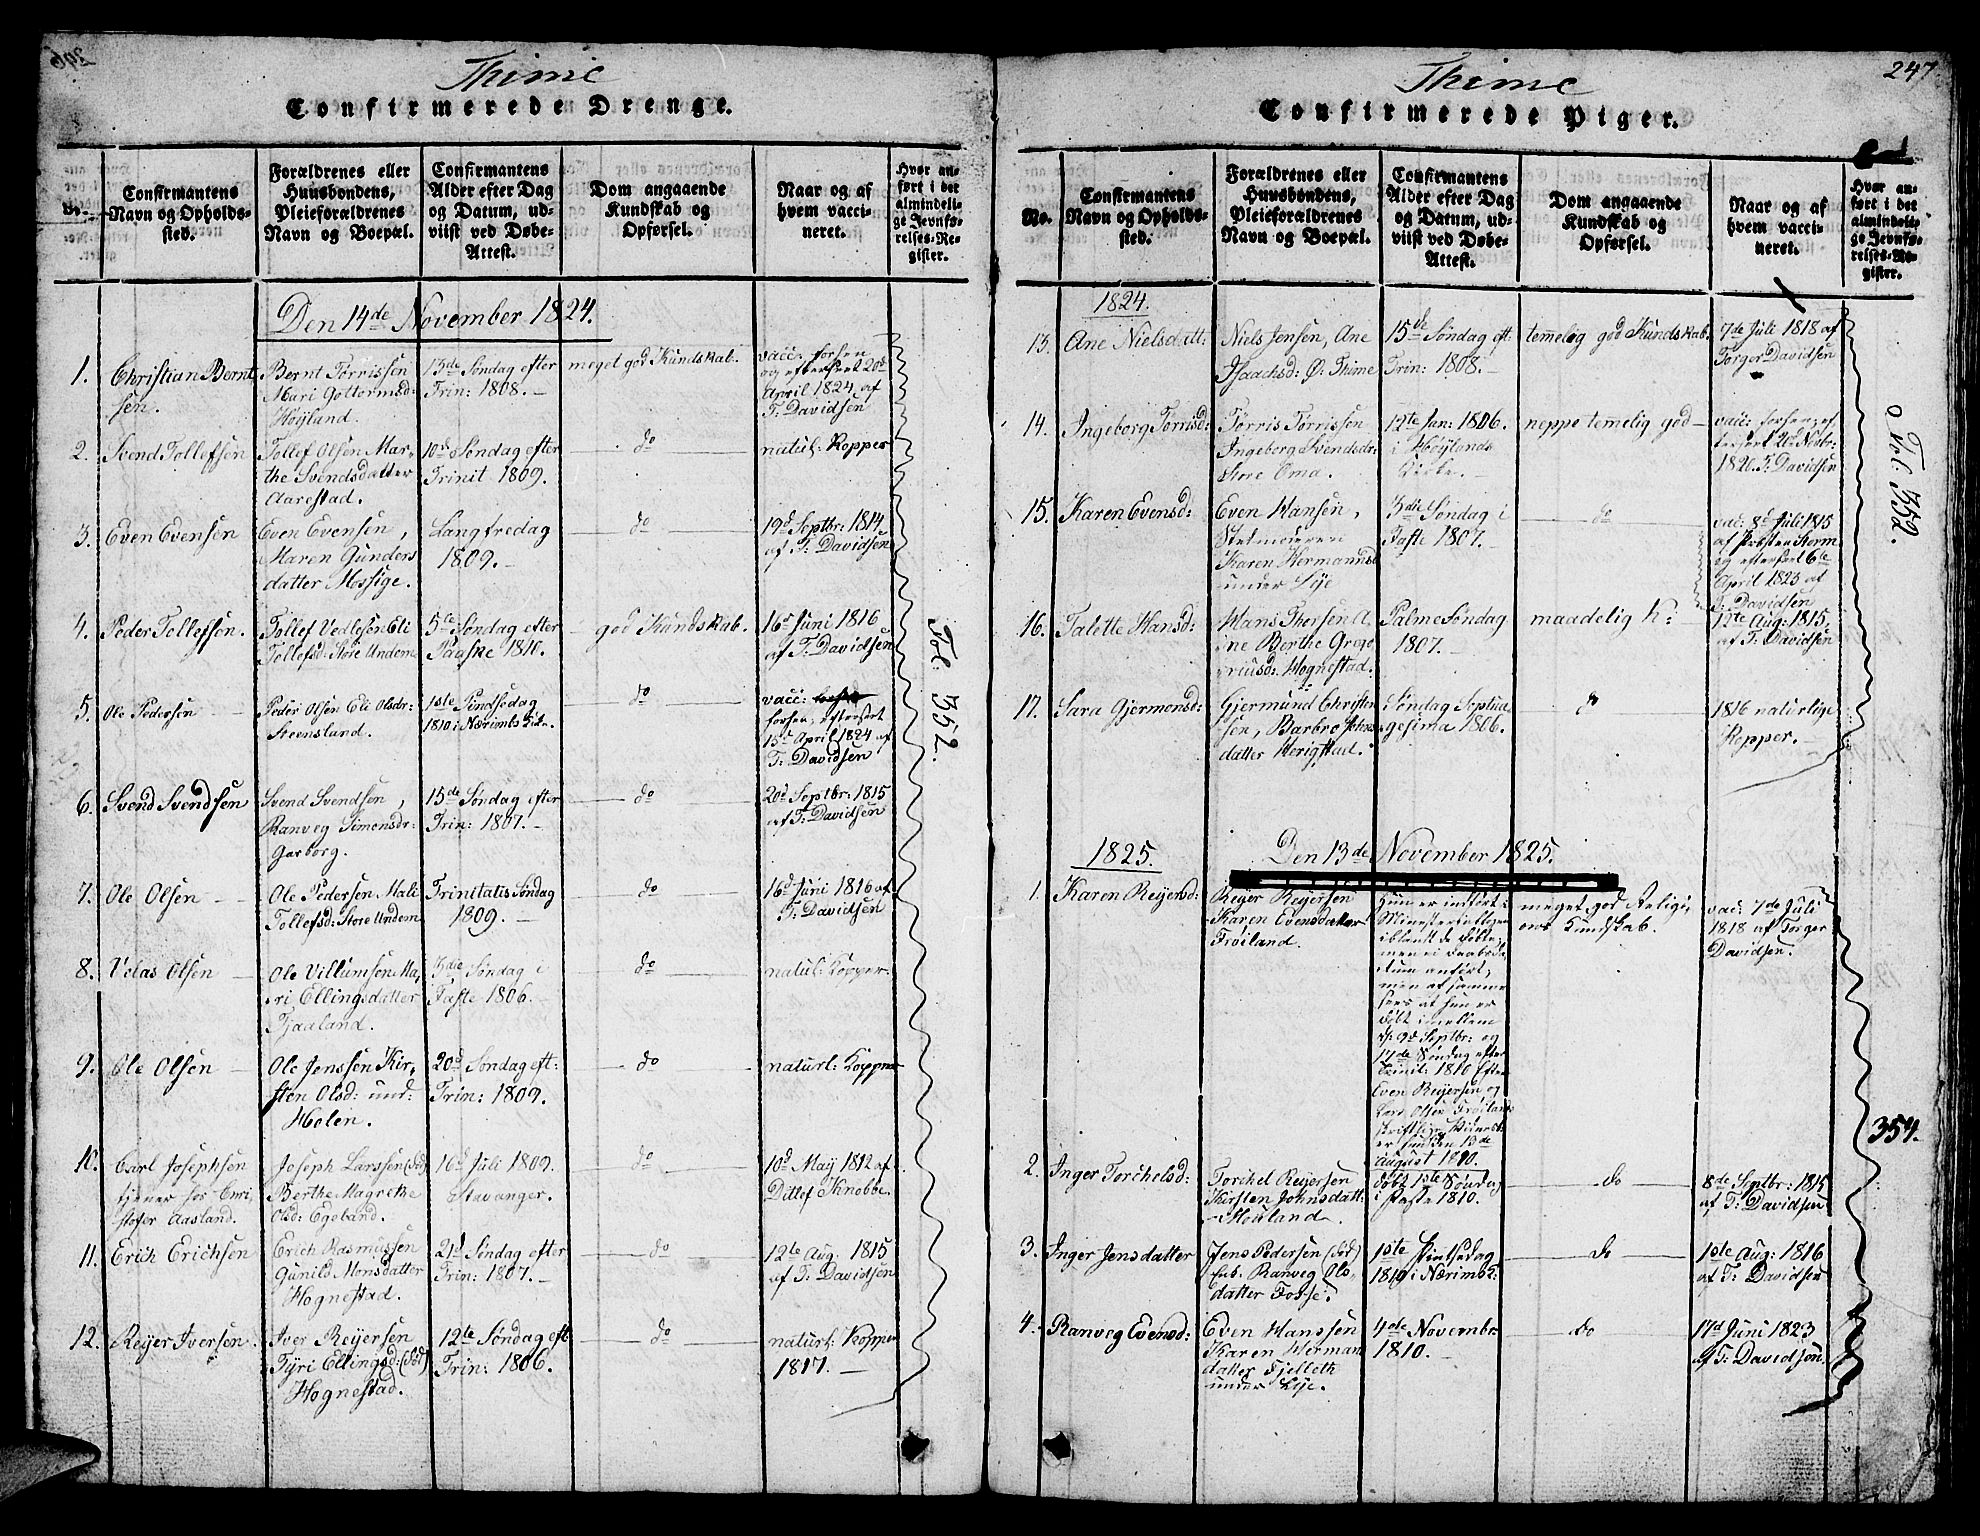 Thime
Confirmerede Drenge.
Confirmantens Navn og Opholdssted.
Forældrenes eller Huusbondens, Pleieforældrenes Navn og Boepæl.
Confirmantens Alder efter Dag og Datum, udviist ved Døbe-Attest.
Dom angaaende Kundskab og Opførsel.
Naar og af hvem vaccineret.
Hvor anført i det almindelige Jevnførelses-Register.
Den 14de November 1824.
1. Christian Berntsen. Bernt Tørrissen Mari Gottormsd: Høyland. 13de Søndag efter Trin: 1808. meget god Kundskab. vacc: forsen og efterseet 20d April 1824 af T: Davidsen
2. Svend Tollefsen Tollef Olsen Marthe Svendsdatter Aarestad. 10d Søndag efter Trinit 1809. do naturl: Kopper
3. Even Evensen Even Evensen, Maren Gundersdatter Mossige. Langfredag 1809. do 19d Septbr: 1814 af T: Davidsen
4. Peder Tollefsen. Tollef Vedlesen Eli Tollefsd: Store Undem 5te Søndag efter Paaske 1810. god Kundskab. 16d Juni 1816 af T: Davidsen
5. Ole Pedersen Peder Olsen Eli Olsdr: Steensland. 1ste Pindsedag 1810 i Nærimbs Kirke. do vacc: forsen, efterseet 15d April 1824 af T: Davidsen
6. Svend Svendsen Svend Svendsen, Ranveg Simonsdr: Garborg. 15de Søndag efter Trin: 1807. do 20d Septbr: 1815 af T: Davidsen
7. Ole Olsen Ole Pedersen, Mali Tollefsd: Store Undem Trinitatis Søndag 1809. do 16d Juni 1816 af T: Davidsen
8. Velas Olsen Ole Villumsen Mari Ellingsdatter Tjaaland. 3die Søndag i Faste 1806. do naturl: Kopper
9. Ole Olsen Ole Jenssen Kirsten Olsd: und: Holen. 20d Søndag eft: Trin: 1809. do naturl: Kopper
10. Carl Josephsen tjener for Christofer Aasland. Joseph Larssen (død) Berthe Magrethe Olsd: Egeland. 16d Juli 1809. Stavanger. do 10d May 1812 af Ditlef Knobbe.
11. Erich Erichsen Erich Rasmussen Gunild Monsdatter Hognestad. 21d Søndag efter Trin: 1807. do 12te Aug: 1815 af T: Davidsen
12. Reyer Iversen. Iver Reyersen Tyri Ellingsd: (død) Hognestad. 12te Søndag eft Trin: 1806. do naturl: Kopper 1817.
Fol: 352.
Thime
247.
Confirmerede Piger.
No.
Confirmantens Navn og Opholdssted.
Forældrenes eller Huusbondens, Pleieforældrenes Navn og Boepæl.
Confirmantens Alder efter Dag og Datum, udviist ved Døbe-Attest.
Dom angaaende Kundskab og Opførsel.
Naar og af hvem vaccineret.
Hvor anført i det almindelige Jevnførelses-Register.
1824.
13. Ane Nielsdatt: Niels Jensen, Ane Isaachsd: Ø: Thime 15de Søndag eft: Trin: 1808. temelig god Kundskab. 7de Juli 1818 af Torger Davidsen
14. Ingeborg Tørrisd: Tørris Tørrissen Ingeborg Svendsdr: Store Oma. 12te Jan: 1806. i Høylands Kirke. neppe temelig god vacc: forsen, efterseet T: Davidsen
15. Karen Evensd: Even Hansen, Stetmoderen Karen Hermannsd under Lye 3die Søndag i Faste 1807. do vac: 8d Juli 1815 af Probsten Storm og efterseet 6te April 1825 af T: Davidsen
16. Talette Hansd: Hans Thorsen Aine Berthe Gregoriusd: Hognestad. Palme Søndag 1807. maadelig K: 12te Aug: 1815, af T: Davidsen
17. Sara Gjermonsd: Gjermund Christensen, Barbro Johnsdatter Herigstad. Søndag Septuagesima 1806. do 1816 naturlige Kopper.
Fol: 352.
1825. Den 13de November 1825.
1. Karen Reyersd: Reyer Reyersen Karen Evensdatter Frøiland. Hun er indført i Ministerialbogen iblandt de døbte, men ei Daabsdatum anført, men af sees at hun er døbt imellem 9d Septbr: og 17de Søndag efter Trinit: 1810 Efter Even Reyersen og Lars Olsen Frøilands skriftlige er hun den 13de August 1810. meget god Religions Kundskab. vac: 7de Juli 1818 af Torger Davidsen.
2. Inger Torchelsd: Torchel Reyersen Kirsten Johnsdatt: døbt 1ste Søndag i Faste 1810. do 8de Septbr: 1815 af T: Davidsen
3. Inger Jensdatter Jens Pedersen (død) Enk. Ranveg Olsdatter Fosse. 1ste Pintsedag 1810 i Nærimb: do 1ste Aug: 1816 af T: Davidsen
4. Ranveg Evensd: Even Hanssen Karen Hermandatter Fjelleth under Lye. 4de Novembr 1810. do 17d Juni 1823 af T: Davidsen.
354.